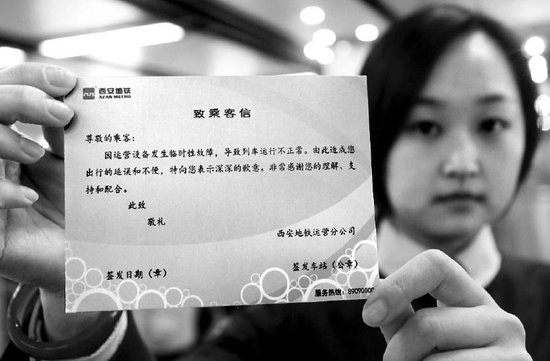 西安地铁
XI'AN METRO
致乘客信
尊敬的乘客:
因运营设备发生临时性故障，导致列车运行不正常。由此造成您
出行的延误和不便，特向您表示深深的歉意。非常感谢您的理解、支
持和配合。
此致
敬礼
西安地铁运营分公司
签发日期（章） 签发车站（公章）
服务热线：89090000